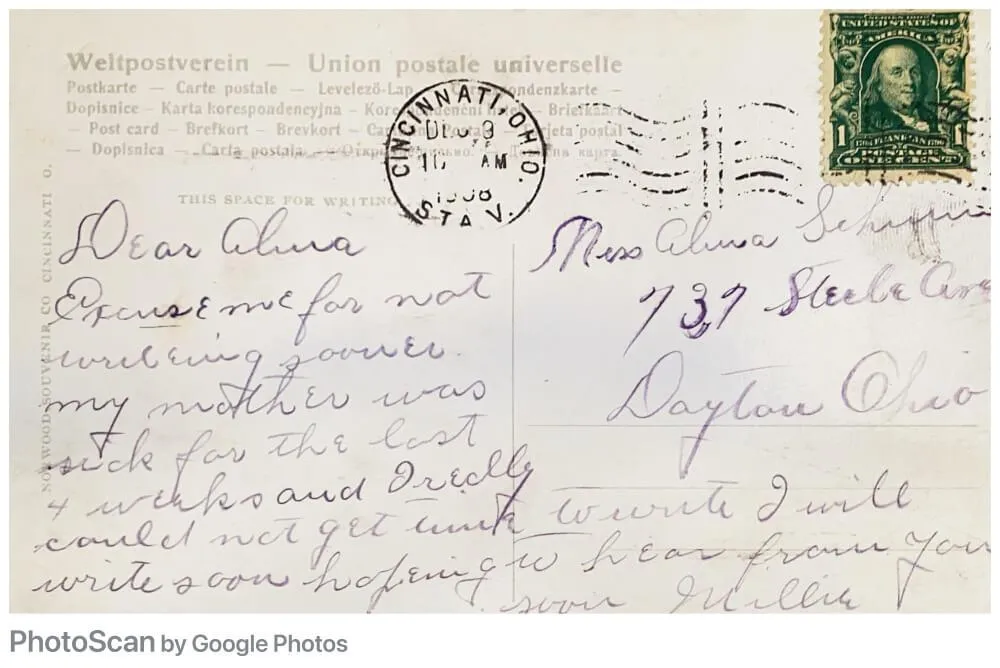 SERIES 1902
UNITED STATES OF
AMERICA
1 FRANKLIN 1
POSTAGE
ONE CENT
Weltpostverein — Union postale universelle
Postkarte — Carte postale — Levelező-Lap
Dopisnice — Karta korespondencyjna
— Post card — Brefkort — Brevkort
— Dopisnica — Carta postala — Дописна карта.
CINCINNATI, OHIO.
AM
1908
STA. V.
THIS SPACE FOR WRITING
NORWOOD SOUVENIR CO CINCINNATI O.
Dear Alma
Excuse me for not
writeing sooner.
my mother was
sick for the last
4 weeks and I really
could not get time to write I will
write soon hopeing to hear from you
soon Millie
Miss Alma
737 Steele Ave
Dayton Ohio
PhotoScan by Google Photos